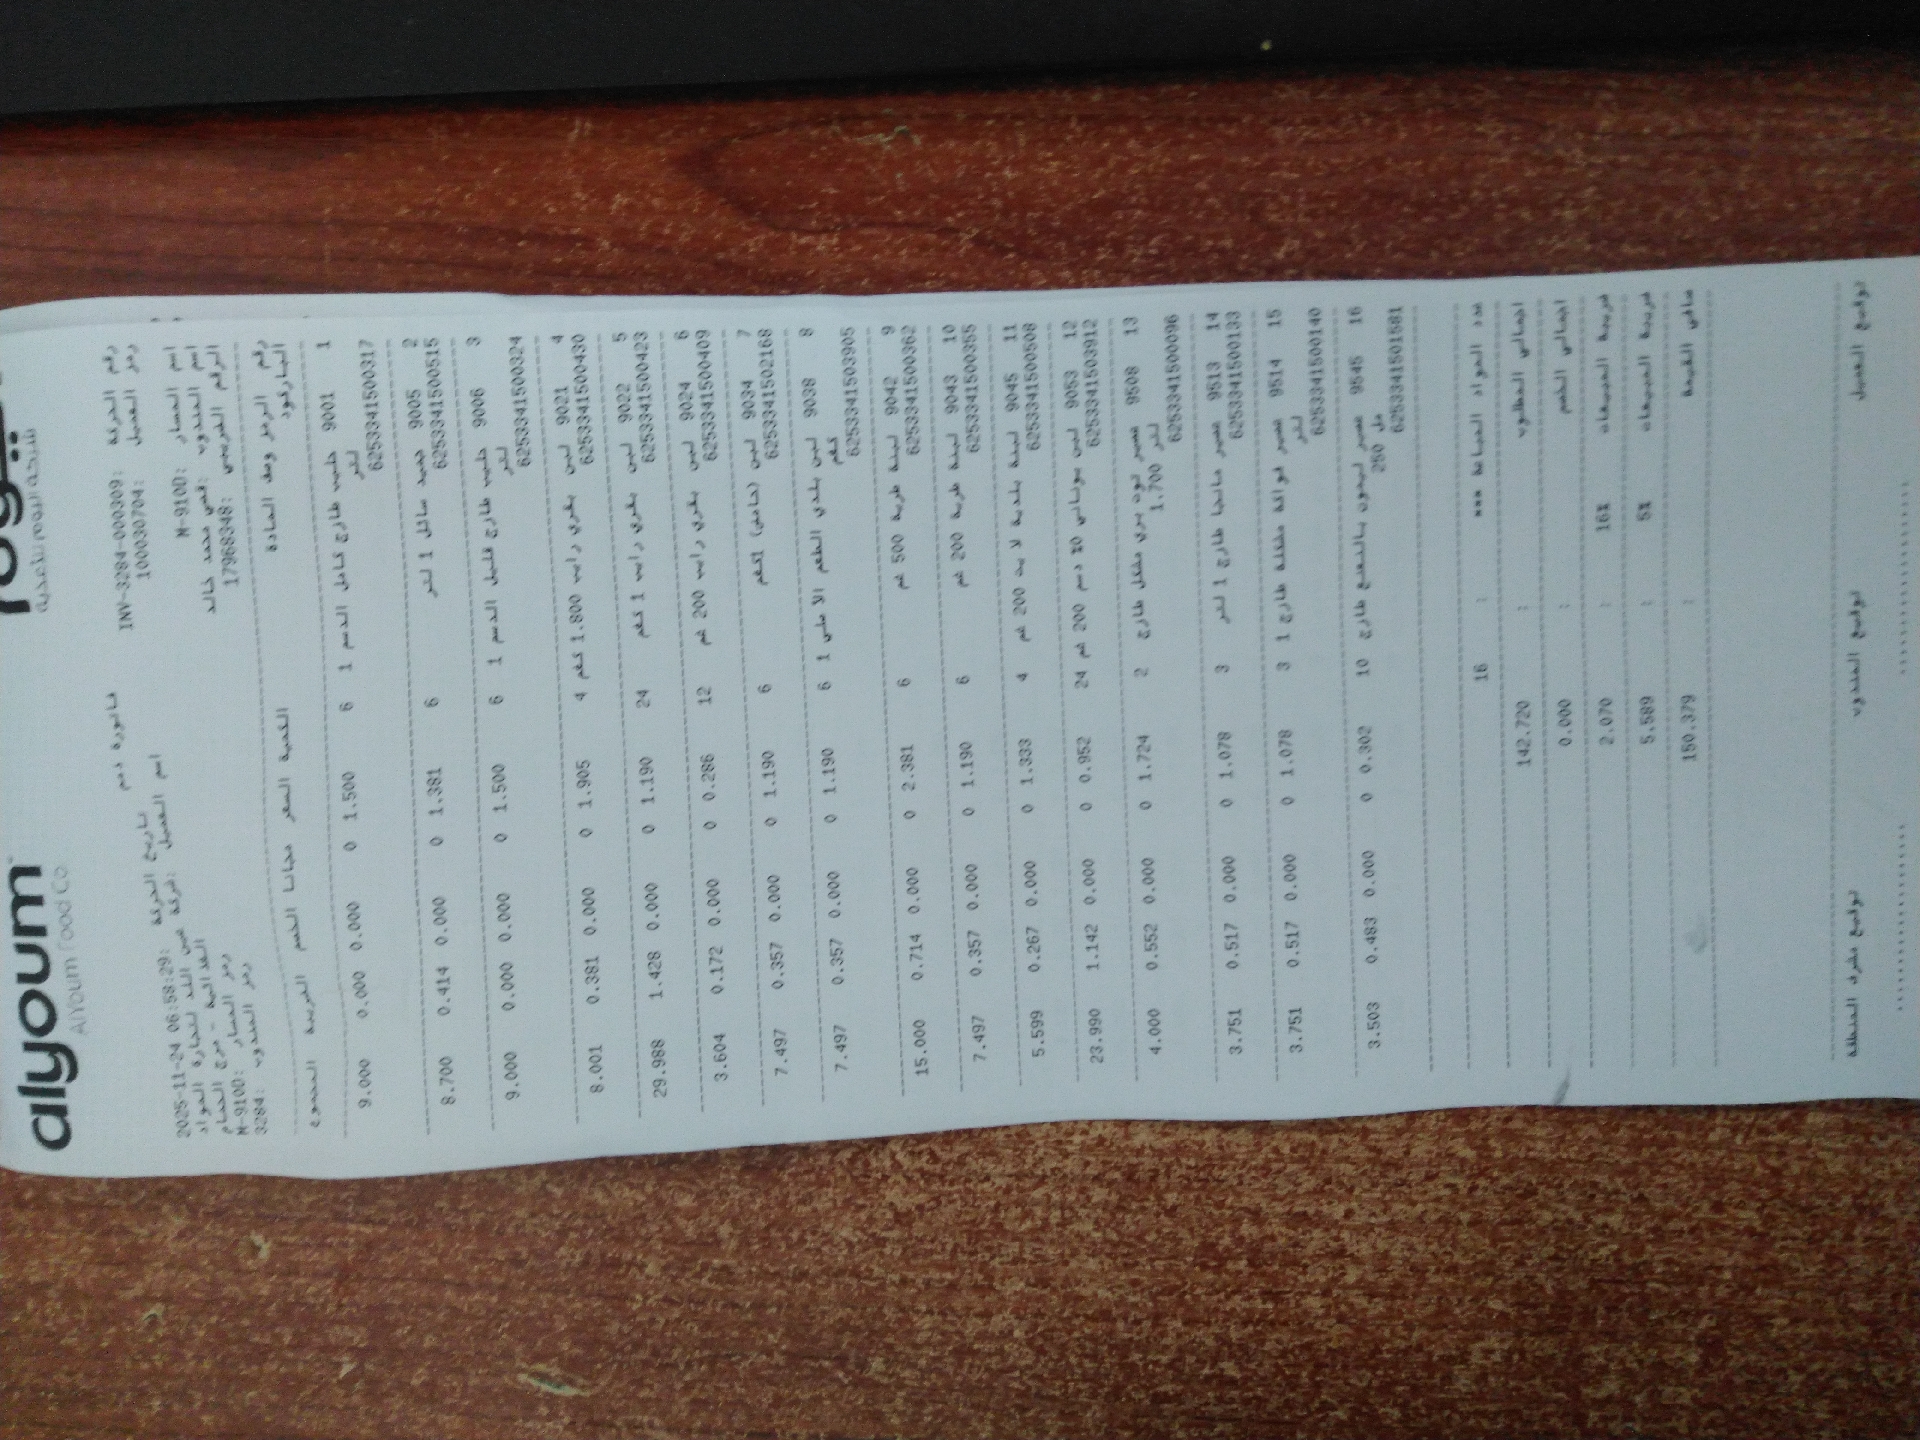 alyoum
AlYoum Food Co
فاتورة ذمم
رقم الحركة: INV-3284-000309
رمز العميل: 100030704
تاريخ الحركة: 2025-11-24 06:58:29
اسم العميل: شركة عين اللند لتجارة المواد
الغذائية - مرج الحمام
اسم المسار: M-9100
رمز المسار: M-9100
اسم المندوب: قصي محمد خالد
رمز المندوب: 3284
الرقم الضريبي: 17968348
رقم الرمز وصف المادة الكمية السعر مجانا الخصم الضريبة المجموع
الباركود
1 9001 حليب طازج كامل الدسم 1 6 1.500 0 0.000 0.000 9.000
لتر
6253341500317
2 9005 جميد سائل 1 لتر 6 1.381 0 0.000 0.414 8.700
6253341500515
3 9006 حليب طازج قليل الدسم 1 6 1.500 0 0.000 0.000 9.000
لتر
6253341500324
4 9021 لبن بقري رايب 1.800 كغم 4 1.905 0 0.000 0.381 8.001
6253341500430
5 9022 لبن بقري رايب 1 كغم 24 1.190 0 0.000 1.428 29.988
6253341500423
6 9024 لبن بقري رايب 200 غم 12 0.286 0 0.000 0.172 3.604
6253341500409
7 9034 لبن (حامض) 1كغم 6 1.190 0 0.000 0.357 7.497
6253341502168
8 9038 لبن بلدي الطعم الاصلي 1 6 1.190 0 0.000 0.357 7.497
كغم
6253341503905
9 9042 لبنة طرية 500 غم 6 2.381 0 0.000 0.714 15.000
6253341500362
10 9043 لبنة طرية 200 غم 6 1.190 0 0.000 0.357 7.497
6253341500355
11 9045 لبنة بلدية لايت 200 غم 4 1.333 0 0.000 0.267 5.599
6253341500508
12 9053 لبن يوناني 0% دسم 200 غم 24 0.952 0 0.000 1.142 23.990
6253341503912
13 9508 عصير توت بري مشكل طازج 2 1.724 0 0.000 0.552 4.000
1.700 لتر
6253341500096
14 9513 عصير مانجا طازج 1 لتر 3 1.078 0 0.000 0.517 3.751
6253341500133
15 9514 عصير فواكة مشكلة طازج 1 3 1.078 0 0.000 0.517 3.751
لتر
6253341500140
16 9545 عصير ليمون بالنعنع طازج 10 0.302 0 0.000 0.483 3.503
250 مل
6253341501581
عدد المواد المباعة *** : 16
اجمالي المطلوب : 142.720
اجمالي الخصم : 0.000
ضريبة المبيعات 16% : 2.070
ضريبة المبيعات 5% : 5.589
صافي القيمة : 150.379
توقيع العميل توقيع المندوب توقيع مشرف المنطقة